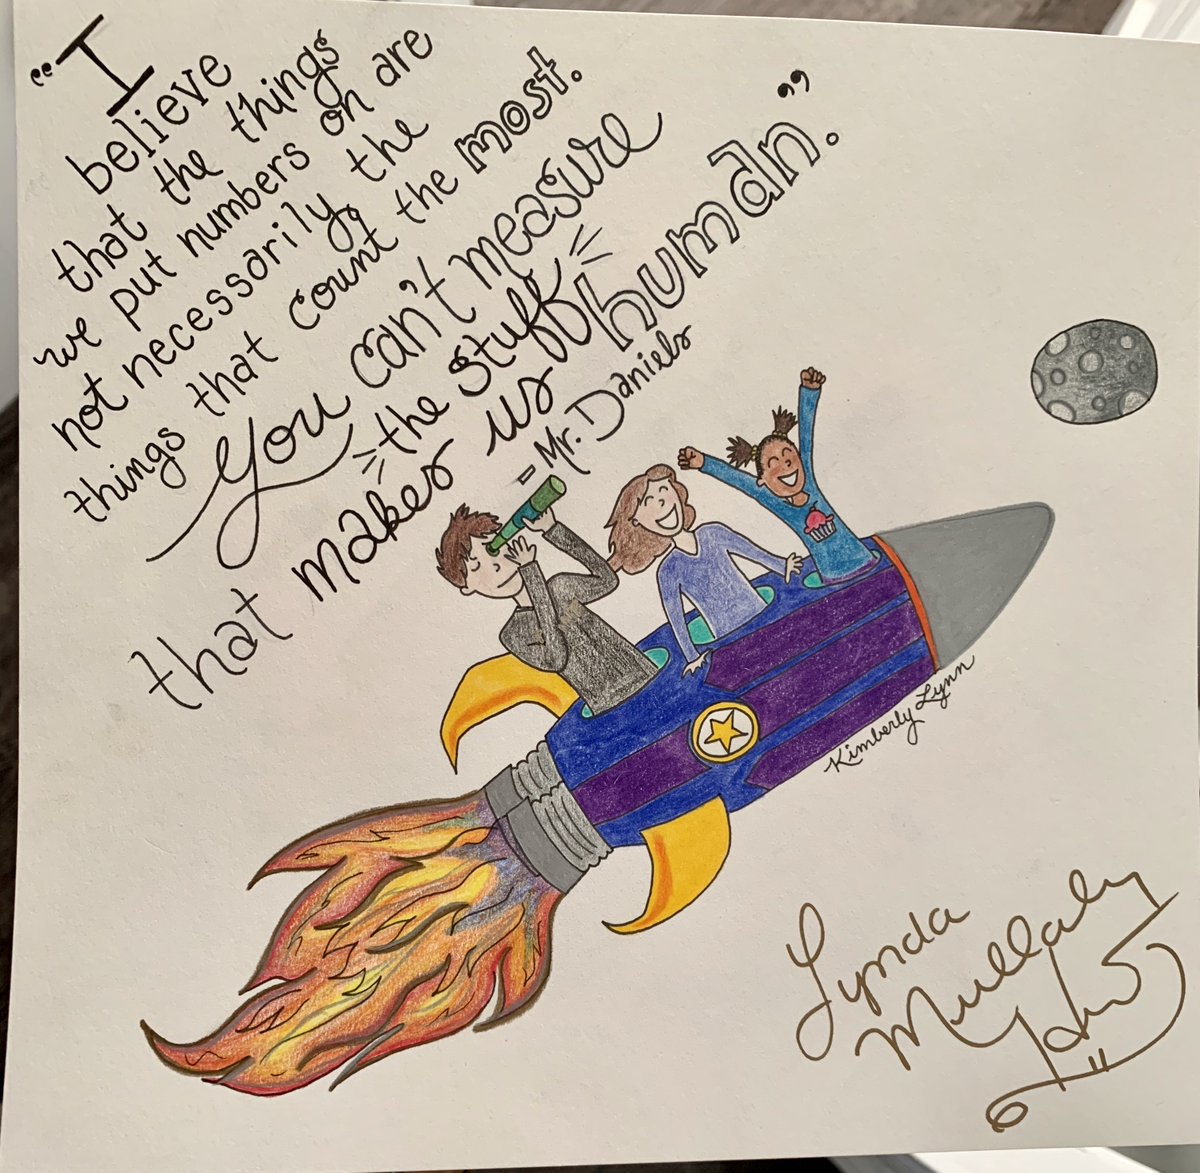 “I
believe
that the things
we put numbers on are
not necessarily the
things that count the most.
You can't measure
the stuff
that makes us human.”
- Mr. Daniels
Kimberly Lynn
Lynda
Mullaly
Hunt